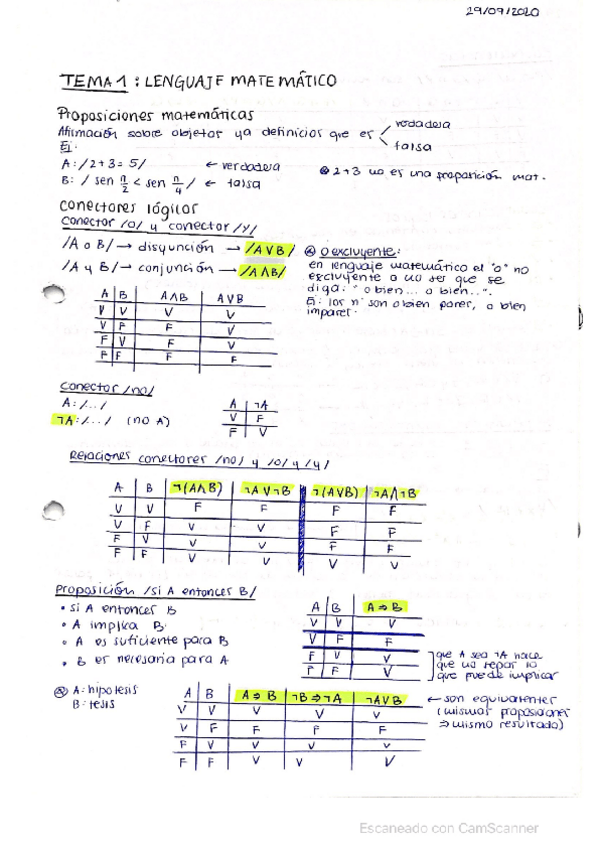 29/09/2020
TEMA 1: LENGUAJE MATEMÁTICO
Proposiciones matemáticas
Afirmación sobre objetos ya definidos que es verdadera
falsa
Ej:
A: /2+3=5/ ← verdadera
B: / sen π/2 < sen π/4 / ← falsa
⊛ 2+3 no es una proposición mat.
Conectores lógicos
Conector /o/ y conector /y/
/A o B/ → disyunción → /A∨B/
/A y B/ → conjunción → /A∧B/
⊛ O excluyente:
en lenguaje matemático el "o" no
excluyente a no ser que se
diga: "o bien... o bien..".
Ej: los nº son o bien pares, o bien
impares.
A B A∧B A∨B
V V V V
V F F V
F V F V
F F F F
Conector /no/
A: /.../
¬A: /.../ (no A)
A ¬A
V F
F V
Relaciones conectores /no/ y /o/ y /y/
A B ¬(A∧B) ¬A∨¬B ¬(A∨B) ¬A∧¬B
V V F F F F
V F V V F F
F V V V F F
F F V V V V
Proposición /si A entonces B/
• si A entonces B
• A implica B
• A es suficiente para B
• B es necesaria para A
A B A⇒B
V V V
V F F
F V V
F F V
que A sea ¬A hace
que no sepas lo
que puede implicar
⊛ A: hipótesis
B: tesis
A B A⇒B ¬B⇒¬A ¬A∨B
V V V V V
V F F F F
F V V V V
F F V V V
← son equivalentes
(mismas proposiciones
⇒ mismo resultado)
Escaneado con CamScanner